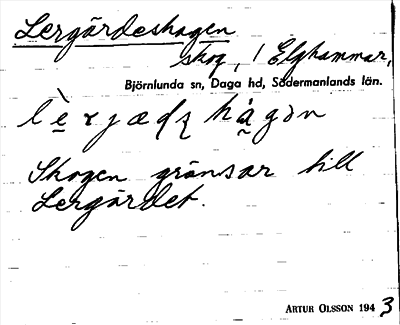 Lergärdeshagen
skog, / Elghammar,
Björnlunda sn, Daga hd, Södermanlands län.
Skogen gränsar till
Lergärdet.
ARTUR OLSSON 1943